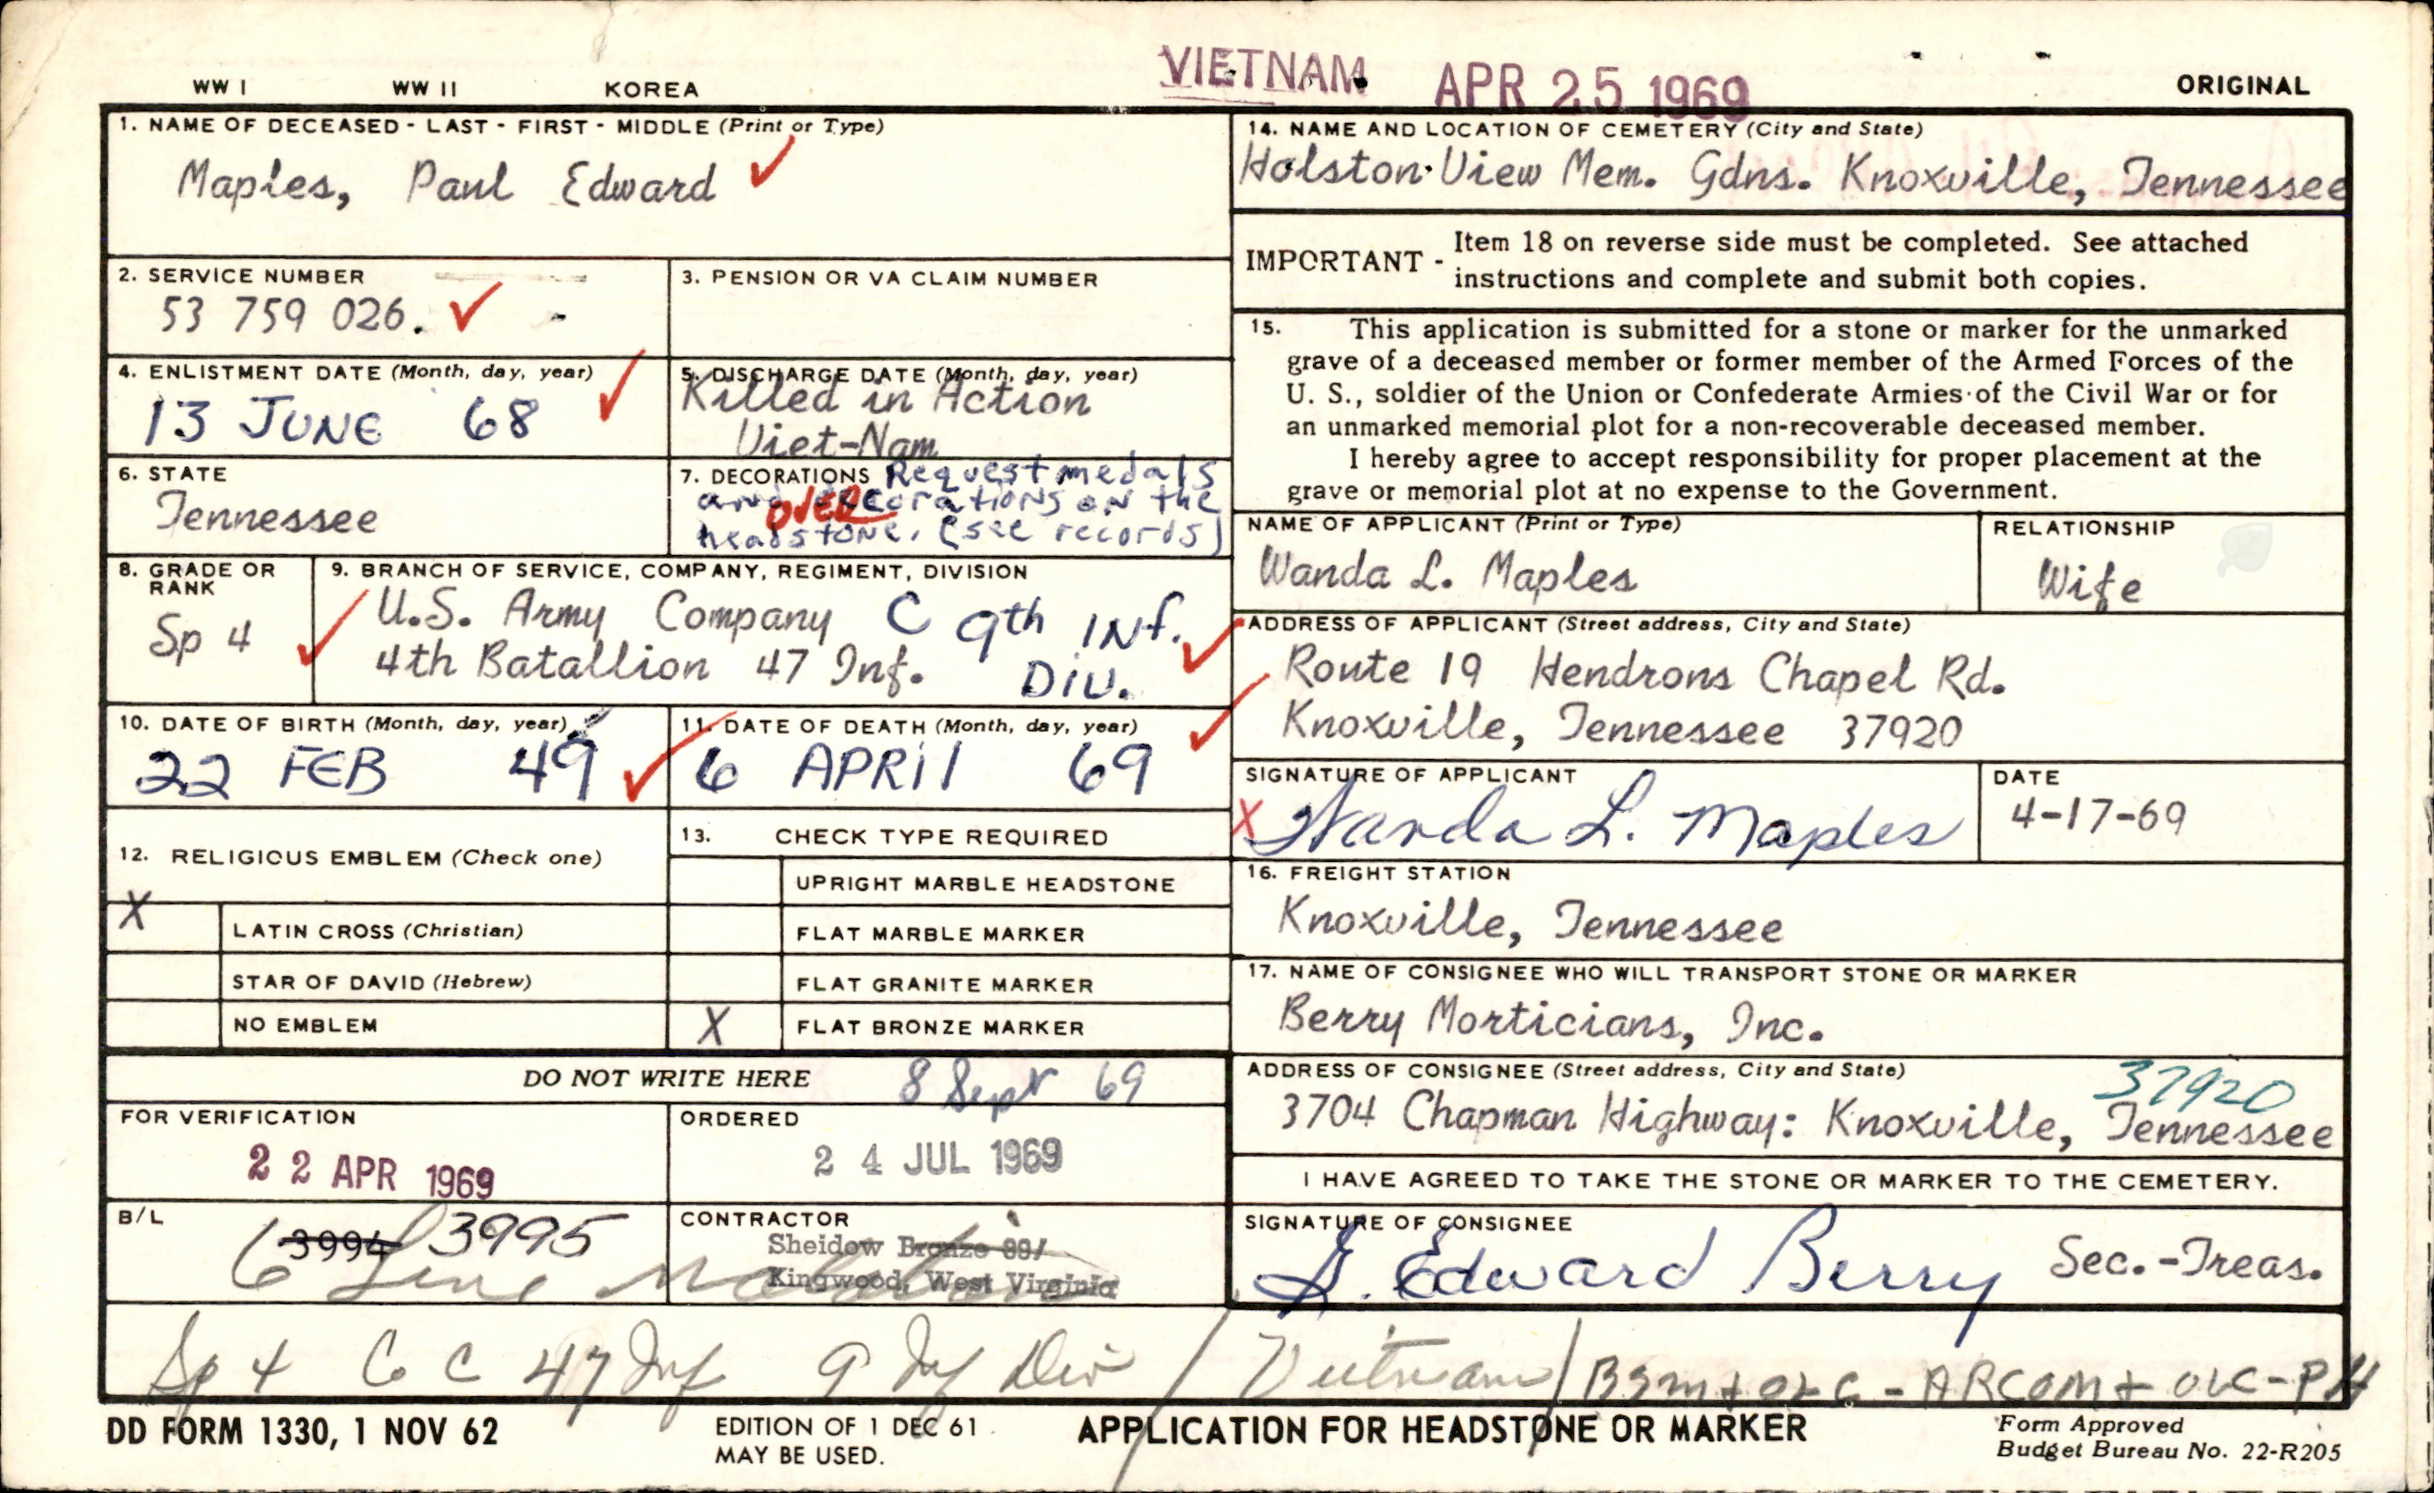 WW I WW II KOREA VIETNAM APR 25 1969 ORIGINAL
1. NAME OF DECEASED - LAST - FIRST - MIDDLE (Print or Type)
Maples, Paul Edward
2. SERVICE NUMBER
53 759 026.
3. PENSION OR VA CLAIM NUMBER
4. ENLISTMENT DATE (Month, day, year)
13 JUNE 68
5. DISCHARGE DATE (Month, day, year)
Killed in Action
Viet-Nam
6. STATE
Tennessee
7. DECORATIONS Request medals
and decorations on the
OVER
headstone. (see records)
8. GRADE OR
RANK
Sp 4
9. BRANCH OF SERVICE, COMPANY, REGIMENT, DIVISION
U.S. Army Company C 9th INf.
4th Batallion 47 Inf. DIV.
10. DATE OF BIRTH (Month, day, year)
22 FEB 49
11. DATE OF DEATH (Month, day, year)
6 APRIl 69
12. RELIGIOUS EMBLEM (Check one)
X LATIN CROSS (Christian)
STAR OF DAVID (Hebrew)
NO EMBLEM
13. CHECK TYPE REQUIRED
UPRIGHT MARBLE HEADSTONE
FLAT MARBLE MARKER
FLAT GRANITE MARKER
X FLAT BRONZE MARKER
DO NOT WRITE HERE 8 Sept 69
FOR VERIFICATION
22 APR 1969
ORDERED
24 JUL 1969
B/L
3994 3995
CONTRACTOR
Sheidow Bronze
Kingwood, West Virginia
14. NAME AND LOCATION OF CEMETERY (City and State)
Holston View Mem. Gdns. Knoxville, Tennessee
IMPORTANT - Item 18 on reverse side must be completed. See attached
instructions and complete and submit both copies.
15. This application is submitted for a stone or marker for the unmarked
grave of a deceased member or former member of the Armed Forces of the
U. S., soldier of the Union or Confederate Armies of the Civil War or for
an unmarked memorial plot for a non-recoverable deceased member.
I hereby agree to accept responsibility for proper placement at the
grave or memorial plot at no expense to the Government.
NAME OF APPLICANT (Print or Type)
Wanda L. Maples
RELATIONSHIP
Wife
ADDRESS OF APPLICANT (Street address, City and State)
Route 19 Hendrons Chapel Rd.
Knoxville, Tennessee 37920
SIGNATURE OF APPLICANT
X Wanda L. Maples
DATE
4-17-69
16. FREIGHT STATION
Knoxville, Tennessee
17. NAME OF CONSIGNEE WHO WILL TRANSPORT STONE OR MARKER
Berry Morticians, Inc.
ADDRESS OF CONSIGNEE (Street address, City and State)
37920
3704 Chapman Highway: Knoxville, Tennessee
I HAVE AGREED TO TAKE THE STONE OR MARKER TO THE CEMETERY.
SIGNATURE OF CONSIGNEE
Edward Berry Sec.-Treas.
Sp 4 Co C 47 Inf 9 Inf Div / Vietnam / BSM + OLC - ARCOM + OLC - PH
DD FORM 1330, 1 NOV 62
EDITION OF 1 DEC 61
MAY BE USED.
APPLICATION FOR HEADSTONE OR MARKER
Form Approved
Budget Bureau No. 22-R205